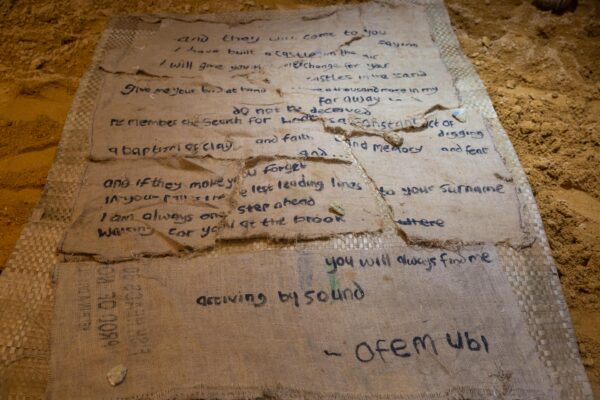 and they will come to you
saying
I have built a castle in the air
I will give you in exchange for your
castles in the sand
Give me your bird at hand a thousand more in my
far away
do not be deceived
remember the search for a constant act of
digging
a baptism of clay and faith and memory and fear
and
and if they make you forget
in your palms are lost leading lines to your surname
I am always one step ahead
waiting for you at the brook where
you will always find me
arriving by sound
~ OFEM UBI
PROD OF